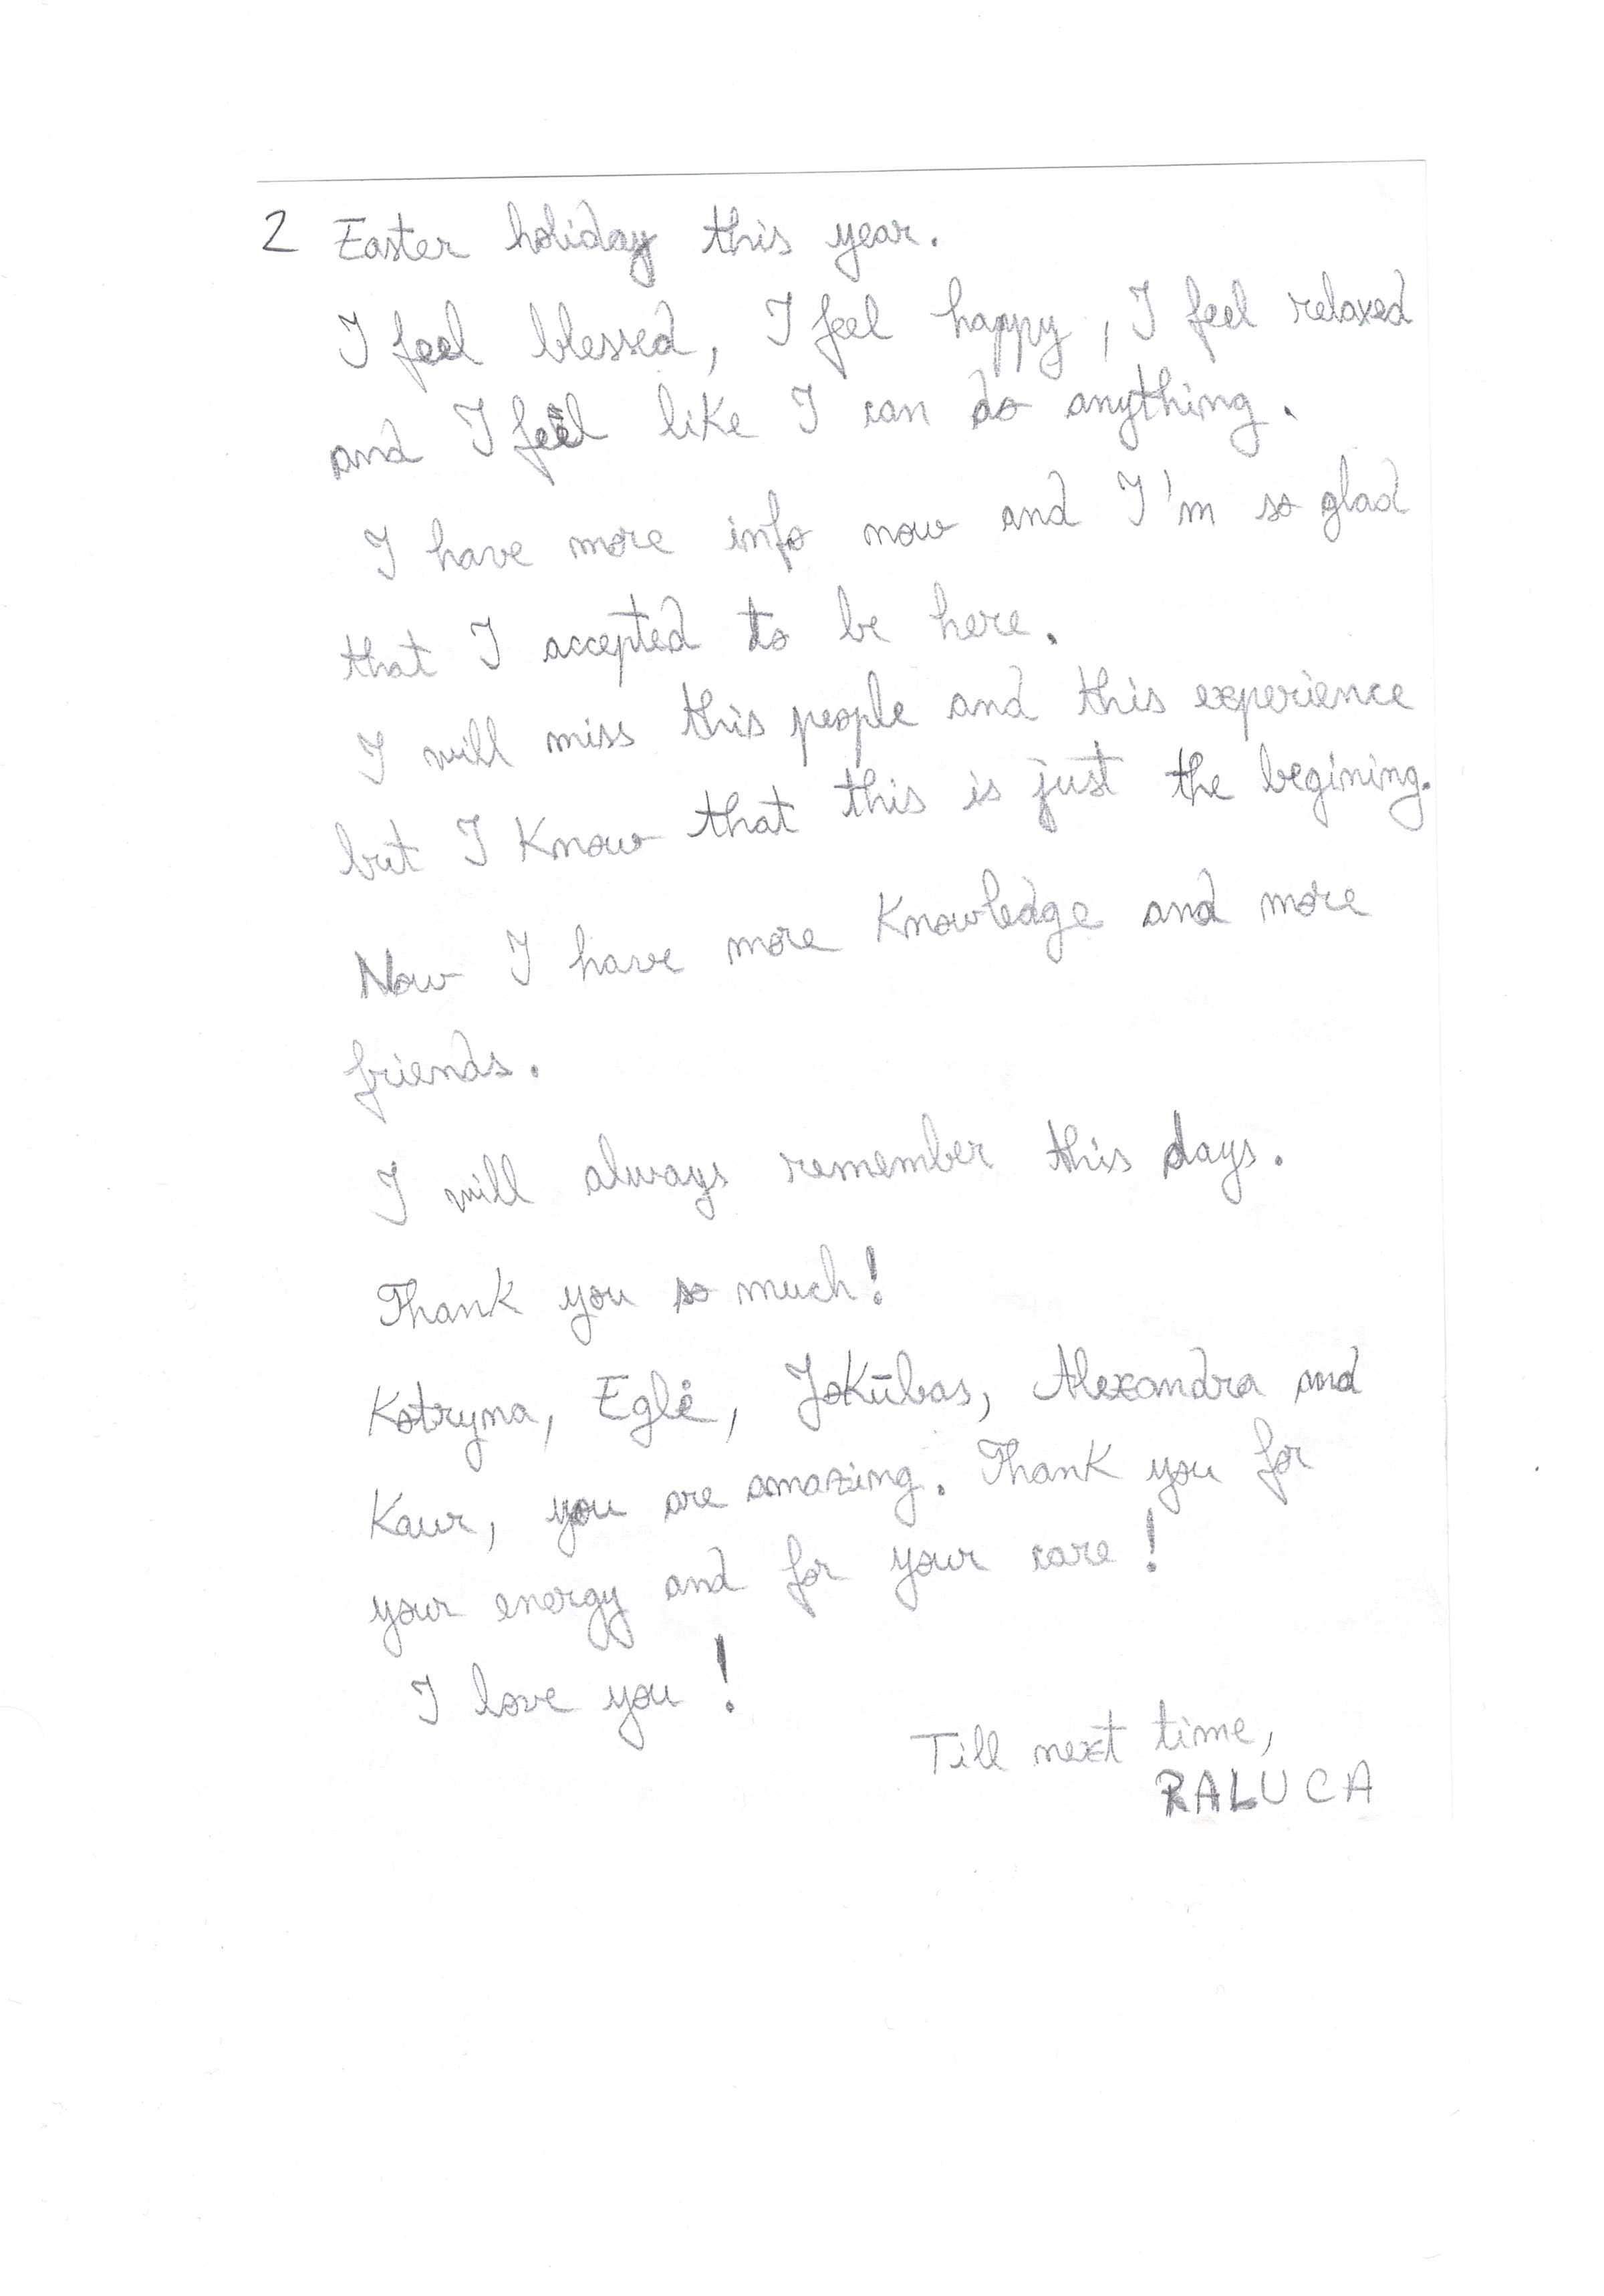 2 Easter holiday this year.
I feel blessed, I feel happy, I feel relaxed
and I feel like I can do anything.
I have more info now and I'm so glad
that I accepted to be here.
I will miss this people and this experience
but I know that this is just the begining.
Now I have more knowledge and more
friends.
I will always remember this days.
Thank you so much!
Kotryna, Eglė, Jokūbas, Alexandra and
Kaur, you are amazing. Thank you for
your energy and for your care!
I love you!
Till next time,
RALUCA